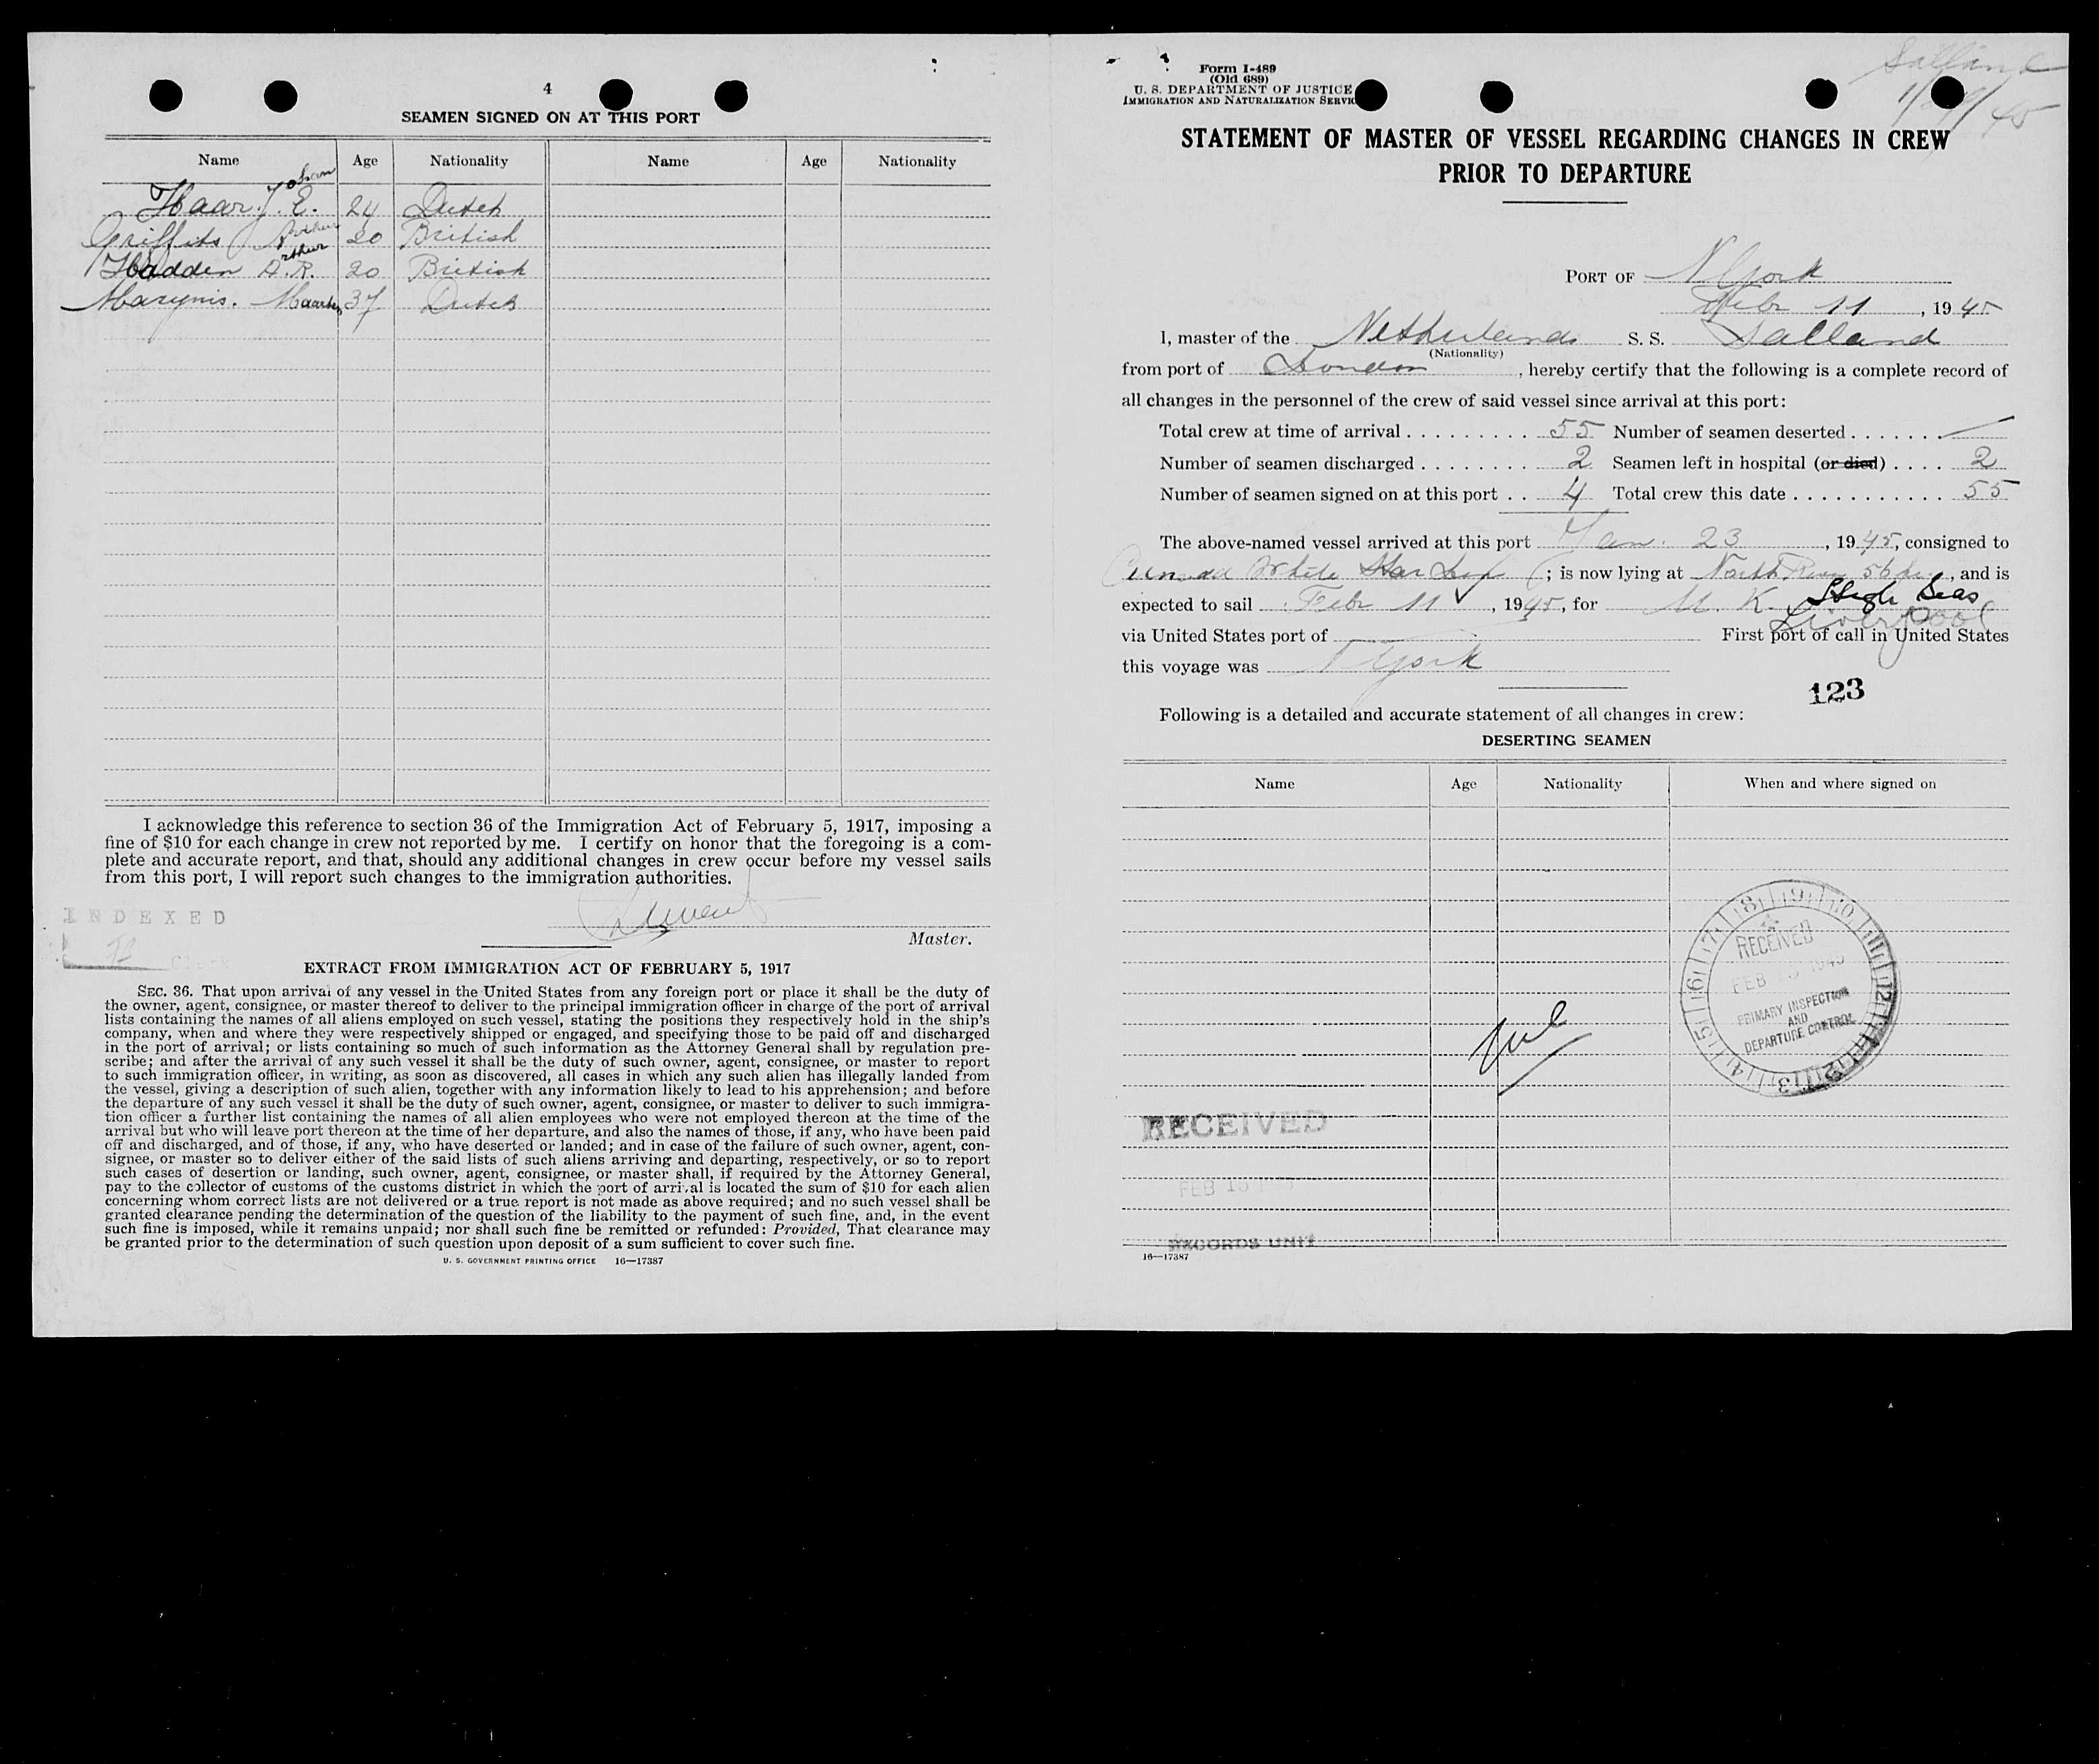 4
SEAMEN SIGNED ON AT THIS PORT
Name Age Nationality Name Age Nationality
Johan
Haar. J. E. 24 Dutch
Griffits Arthur 20 British
Hadden A.R. 20 British
rthur
Marynis. Maarten 37 Dutch
I acknowledge this reference to section 36 of the Immigration Act of February 5, 1917, imposing a
fine of $10 for each change in crew not reported by me. I certify on honor that the foregoing is a com-
plete and accurate report, and that, should any additional changes in crew occur before my vessel sails
from this port, I will report such changes to the immigration authorities.
INDEXED
Clerk
Master.
EXTRACT FROM IMMIGRATION ACT OF FEBRUARY 5, 1917
SEC. 36. That upon arrival of any vessel in the United States from any foreign port or place it shall be the duty of
the owner, agent, consignee, or master thereof to deliver to the principal immigration officer in charge of the port of arrival
lists containing the names of all aliens employed on such vessel, stating the positions they respectively hold in the ship's
company, when and where they were respectively shipped or engaged, and specifying those to be paid off and discharged
in the port of arrival; or lists containing so much of such information as the Attorney General shall by regulation pre-
scribe; and after the arrival of any such vessel it shall be the duty of such owner, agent, consignee, or master to report
to such immigration officer, in writing, as soon as discovered, all cases in which any such alien has illegally landed from
the vessel, giving a description of such alien, together with any information likely to lead to his apprehension; and before
the departure of any such vessel it shall be the duty of such owner, agent, consignee, or master to deliver to such immigra-
tion officer a further list containing the names of all alien employees who were not employed thereon at the time of the
arrival but who will leave port thereon at the time of her departure, and also the names of those, if any, who have been paid
off and discharged, and of those, if any, who have deserted or landed; and in case of the failure of such owner, agent, con-
signee, or master so to deliver either of the said lists of such aliens arriving and departing, respectively, or so to report
such cases of desertion or landing, such owner, agent, consignee, or master shall, if required by the Attorney General,
pay to the collector of customs of the customs district in which the port of arrival is located the sum of $10 for each alien
concerning whom correct lists are not delivered or a true report is not made as above required; and no such vessel shall be
granted clearance pending the determination of the question of the liability to the payment of such fine, and, in the event
such fine is imposed, while it remains unpaid; nor shall such fine be remitted or refunded: Provided, That clearance may
be granted prior to the determination of such question upon deposit of a sum sufficient to cover such fine.
U. S. GOVERNMENT PRINTING OFFICE 16—17387
Salland
Form I-489
(Old 689)
U. S. DEPARTMENT OF JUSTICE
IMMIGRATION AND NATURALIZATION SERVIC
STATEMENT OF MASTER OF VESSEL REGARDING CHANGES IN CREW
PRIOR TO DEPARTURE
PORT OF N York
Febr 11, 1945
I, master of the Netherlands S. S. Salland
(Nationality)
from port of London, hereby certify that the following is a complete record of
all changes in the personnel of the crew of said vessel since arrival at this port:
Total crew at time of arrival . . . . . . . . . 55 Number of seamen deserted . . . . . . . —
Number of seamen discharged . . . . . . . . 2 Seamen left in hospital (or died) . . . . 2
Number of seamen signed on at this port . . 4 Total crew this date . . . . . . . . . . . 55
The above-named vessel arrived at this port Jan. 23, 1945, consigned to
Cunard White Star; is now lying at North River 56, and is
expected to sail Febr 11, 1945, for U. K. High Seas
Liverpool
via United States port of First port of call in United States
this voyage was N York
123
Following is a detailed and accurate statement of all changes in crew:
DESERTING SEAMEN
Name Age Nationality When and where signed on
RECEIVED
FEB 13 1945
PRIMARY INSPECTION
AND
DEPARTURE CONTROL
RECEIVED
FEB 13
RECORDS UNIT
16—17387